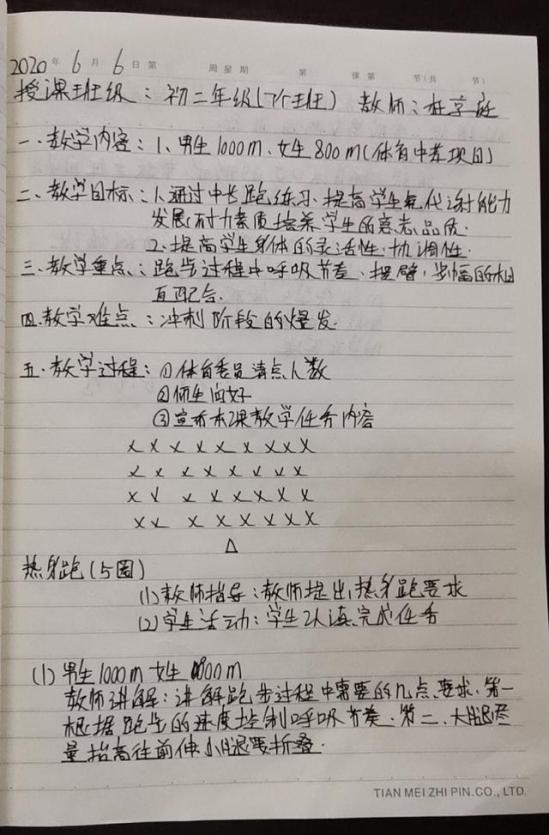 2020年 6月 6日 第 周 星期 第 课 第 节(共 节)
授课班级：初二年级(7个班) 教师：
一、教学内容：1、男生1000m、女生800m(体育中考项目)
二、教学目标：1、通过中长跑练习、提高学生氧代谢能力
发展耐力素质培养学生的意志品质.
2、提高学生身体的灵活性、协调性.
三、教学重点：跑步过程中呼吸节奏、摆臂、步幅的相
互配合.
四、教学难点：冲刺阶段的爆发.
五、教学过程：①体育委员清点人数
②师生问好
③宣布本课教学任务内容
x x x x x x x x x
x x x x x x x x
x x x x x x x x
x x x x x x x x
△
热身跑(5圈)
(1)教师指导：教师提出热身跑要求
(2)学生活动：学生认真完成任务
(1)男生1000m 女生800m
教师讲解：讲解跑步过程中需要的几点要求、第一
根据跑步的速度控制呼吸节奏、第二、大腿尽
量抬高往前伸、小腿要折叠.
TIAN MEI ZHI PIN.CO., LTD.